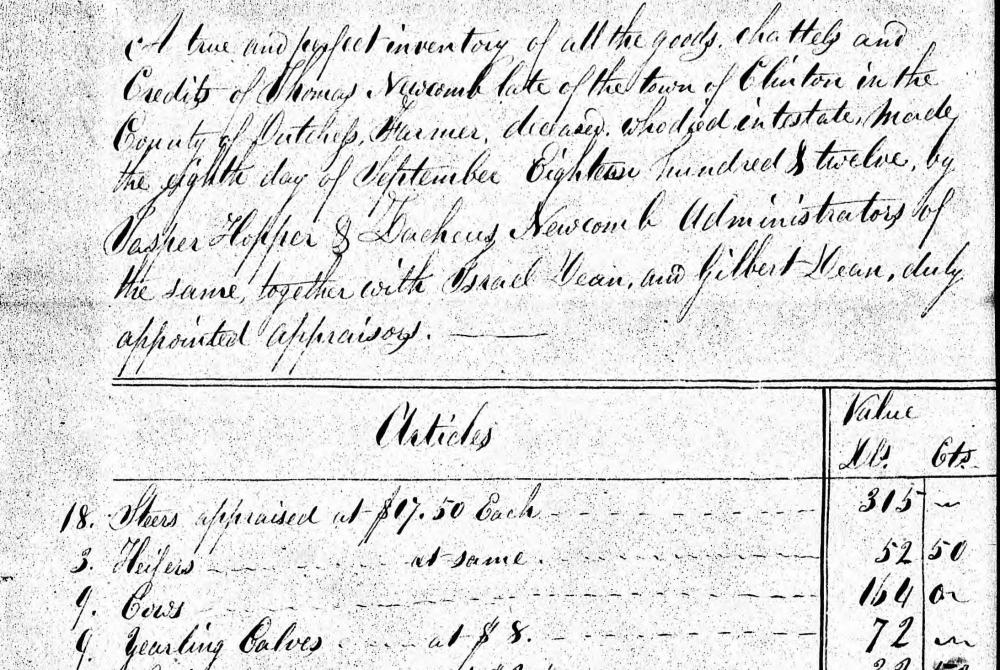 A true and perfect inventory of all the goods, chattels and
Credits of Thomas Newcomb late of the town of Clinton in the
County of Dutchess, Farmer, deceased, who died intestate, made
the eighth day of September Eighteen hundred & twelve, by
Jasper Hopper & Zacheus Newcomb Administrators of
the same, together with Israel Dean, and Gilbert Dean, duly
appointed appraisors.
Articles Value
Dls. Cts.
18. Steers appraised at $17.50 Each 315
3. Heifers at same. 52 50
9. Cows 164
9 Yearling Calves at $8. 72